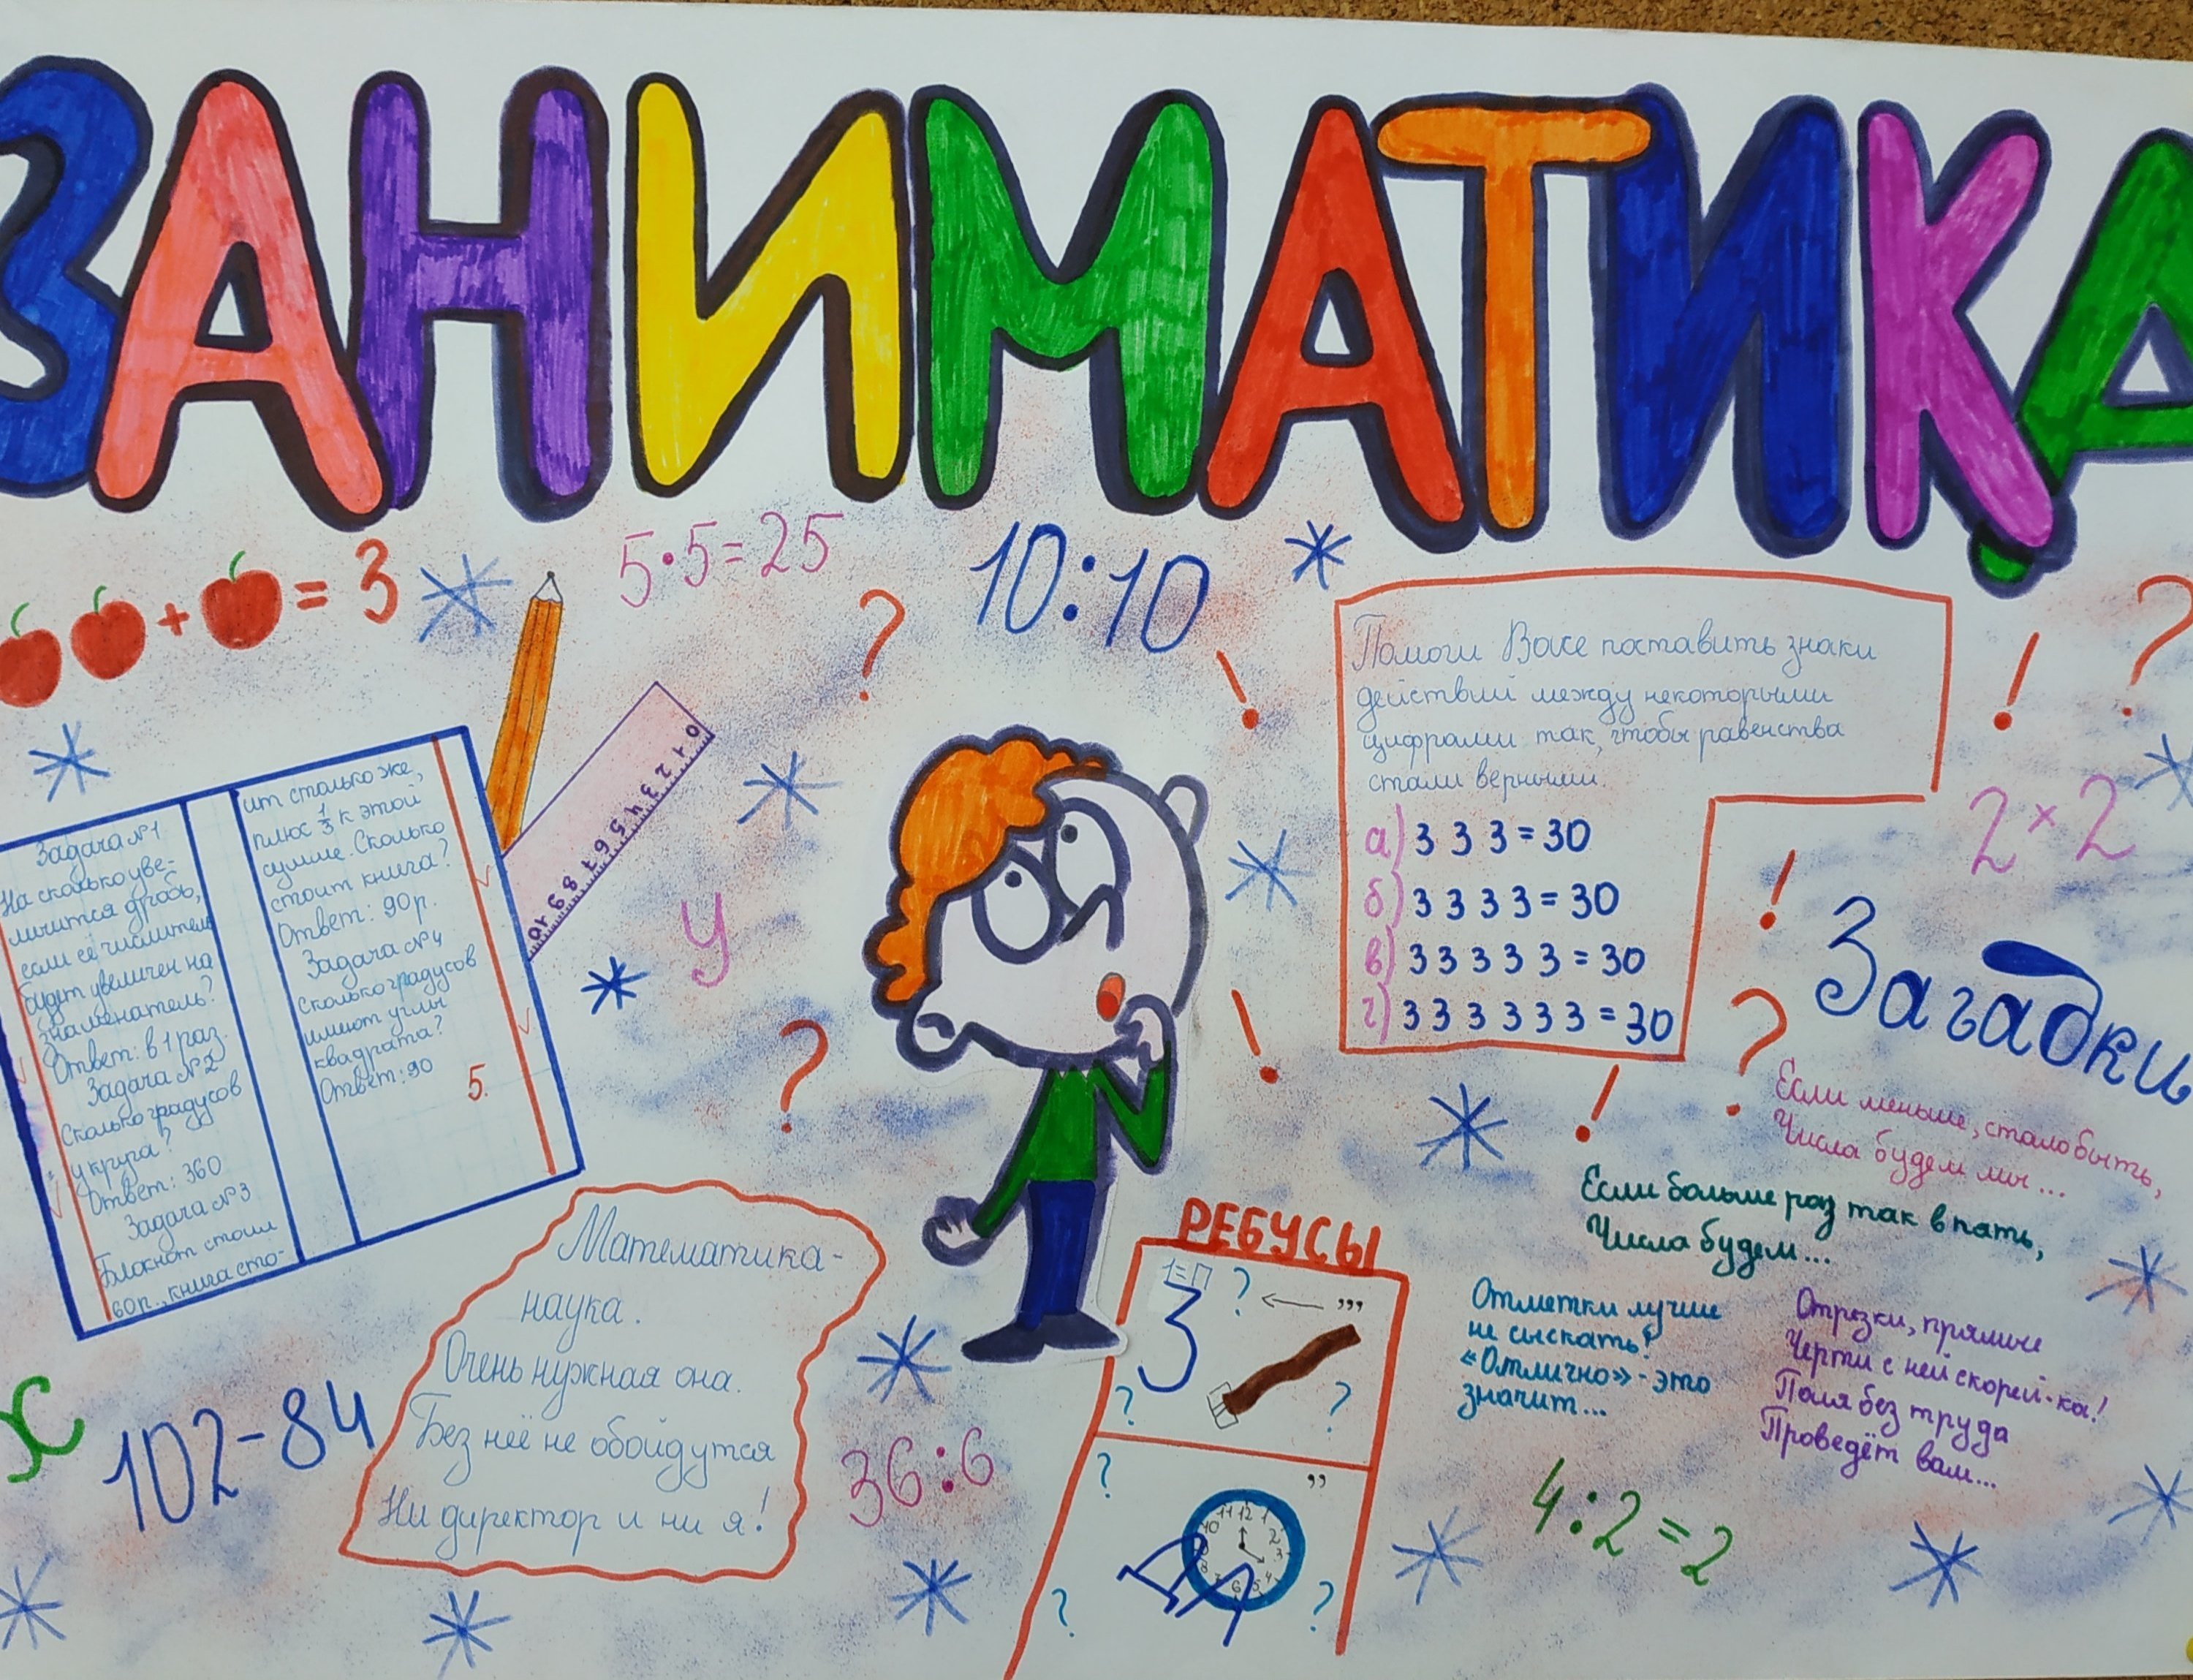 ЗАНИМАТИКА
+ = 3
5·5=25
10:10
?
!
!
?
0 1 2 3 4 5 6 7 8 9 10
Задача №1
На сколько уве-
личится дробь,
если её числитель
будет увеличен на
знаменатель?
Ответ: в 1 раз.
Задача №2
Сколько градусов
у круга?
Ответ: 360
Задача №3
Блокнот стоил
60р., книга сто-
ит столько же,
плюс 1/3 к этой
сумме. Сколько
стоит книга?
Ответ: 90р.
Задача №4
Сколько градусов
имеют углы
квадрата?
Ответ: 90
5.
у
?
!
Помоги Васе поставить знаки
действий между некоторыми
цифрами так, чтобы равенства
стали верными.
а) 3 3 3 = 30
б) 3 3 3 3 = 30
в) 3 3 3 3 3 = 30
г) 3 3 3 3 3 3 = 30
2×2
!
?
!
Загадки
Если меньше, стало быть,
Числа будем мы...
Если больше раз так в пять,
Числа будем...
Отметки лучше
не сыскать!
«Отлично» - это
значит...
Отрезки, прямые
Черти с ней скорей-ка!
Поля без труда
Проведёт вам...
х
102-84
Математика-
наука.
Очень нужная она.
Без неё не обойдутся
Ни директор и ни я!
36:6
РЕБУСЫ
1=П
? ← ,,,
3
? ?
? ,,
11 12 1
10 2
3
8 4
7 6 5
? ?
4:2=2